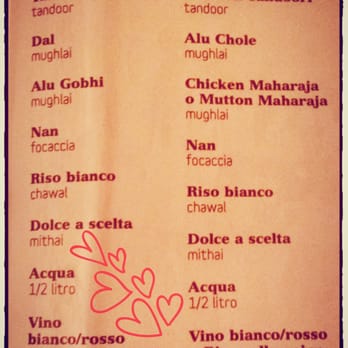 tandoor
Dal
mughlai
Alu Gobhi
mughlai
Nan
focaccia
Riso bianco
chawal
Dolce a scelta
mithai
Acqua
1/2 litro
Vino
bianco/rosso
tandoor
Alu Chole
mughlai
Chicken Maharaja
o Mutton Maharaja
mughlai
Nan
focaccia
Riso bianco
chawal
Dolce a scelta
mithai
Acqua
1/2 litro
Vino bianco/rosso